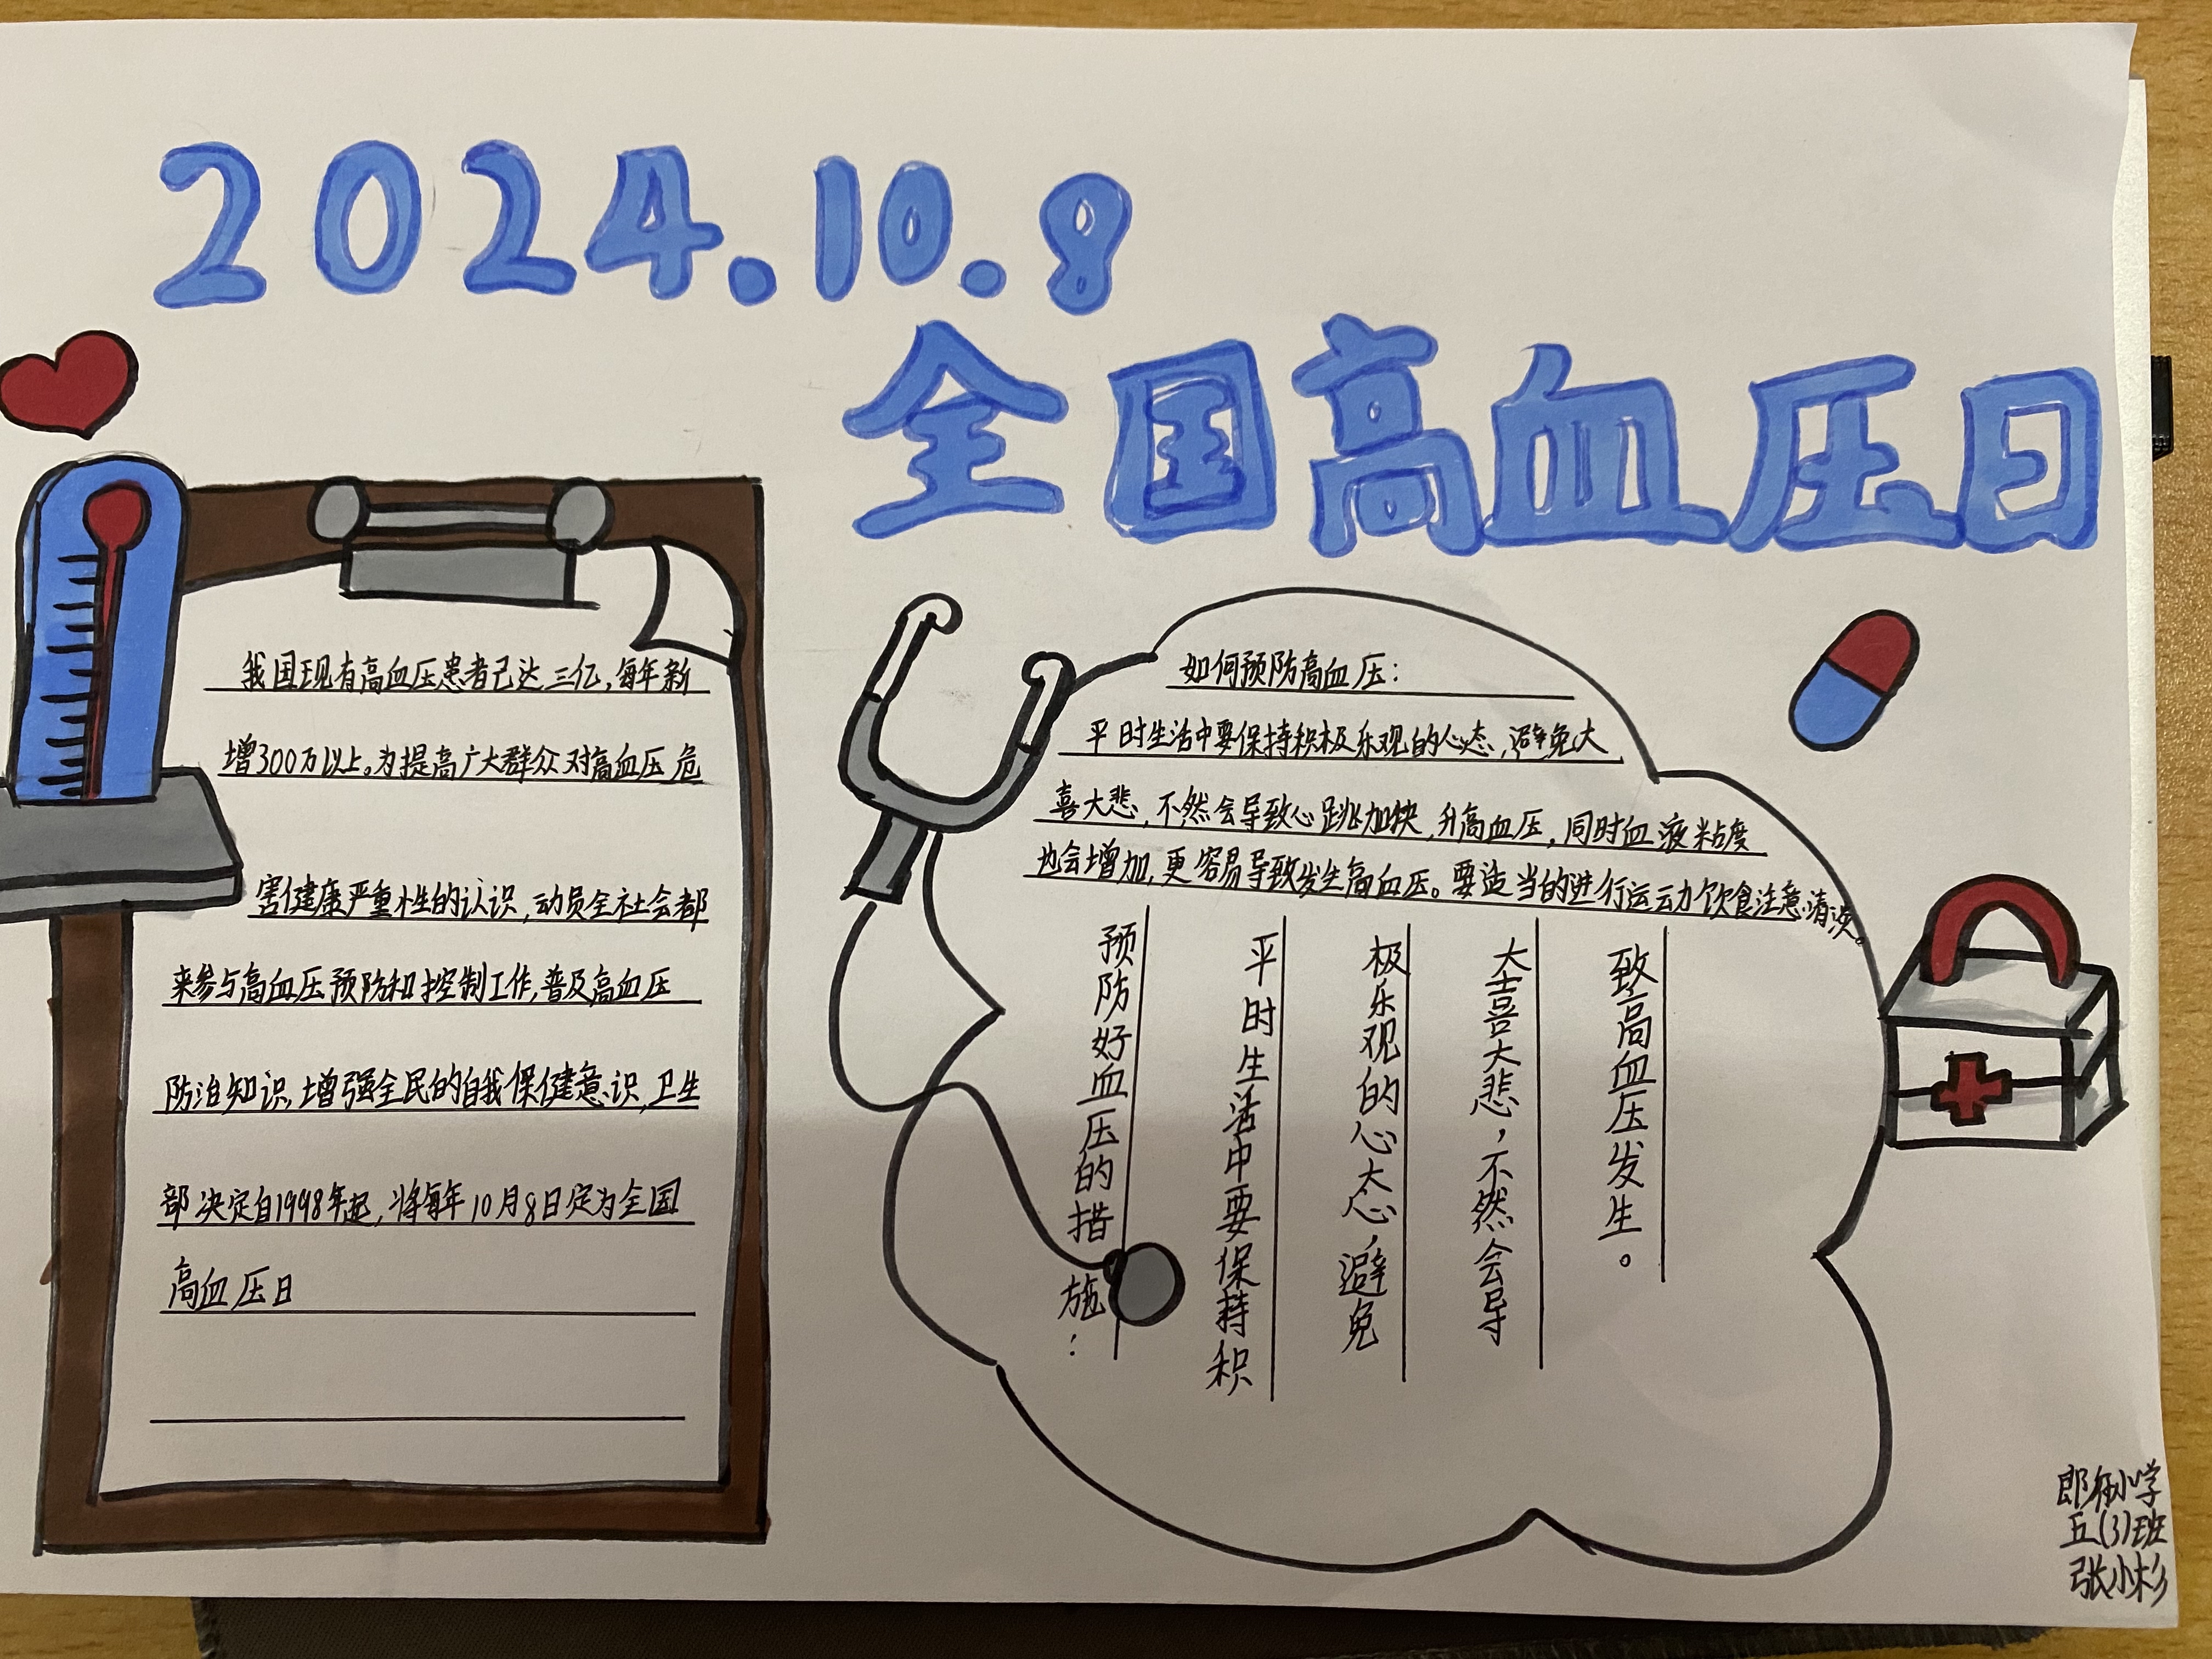 2024.10.8
全国高血压日
我国现有高血压患者已达三亿,每年新
增300万以上。为提高广大群众对高血压危
害健康严重性的认识,动员全社会都
来参与高血压预防和控制工作,普及高血压
防治知识,增强全民的自我保健意识,卫生
部决定自1998年起,将每年10月8日定为全国
高血压日
如何预防高血压:
平时生活中要保持积极乐观的心态,避免大
喜大悲,不然会导致心跳加快,升高血压,同时血液粘度
也会增加,更容易导致发生高血压。要适当的进行运动饮食注意清淡。
预防好血压的措施:
平时生活中要保持积
极乐观的心态,避免
大喜大悲,不然会导
致高血压发生。
小学
五(3)班
张小杉